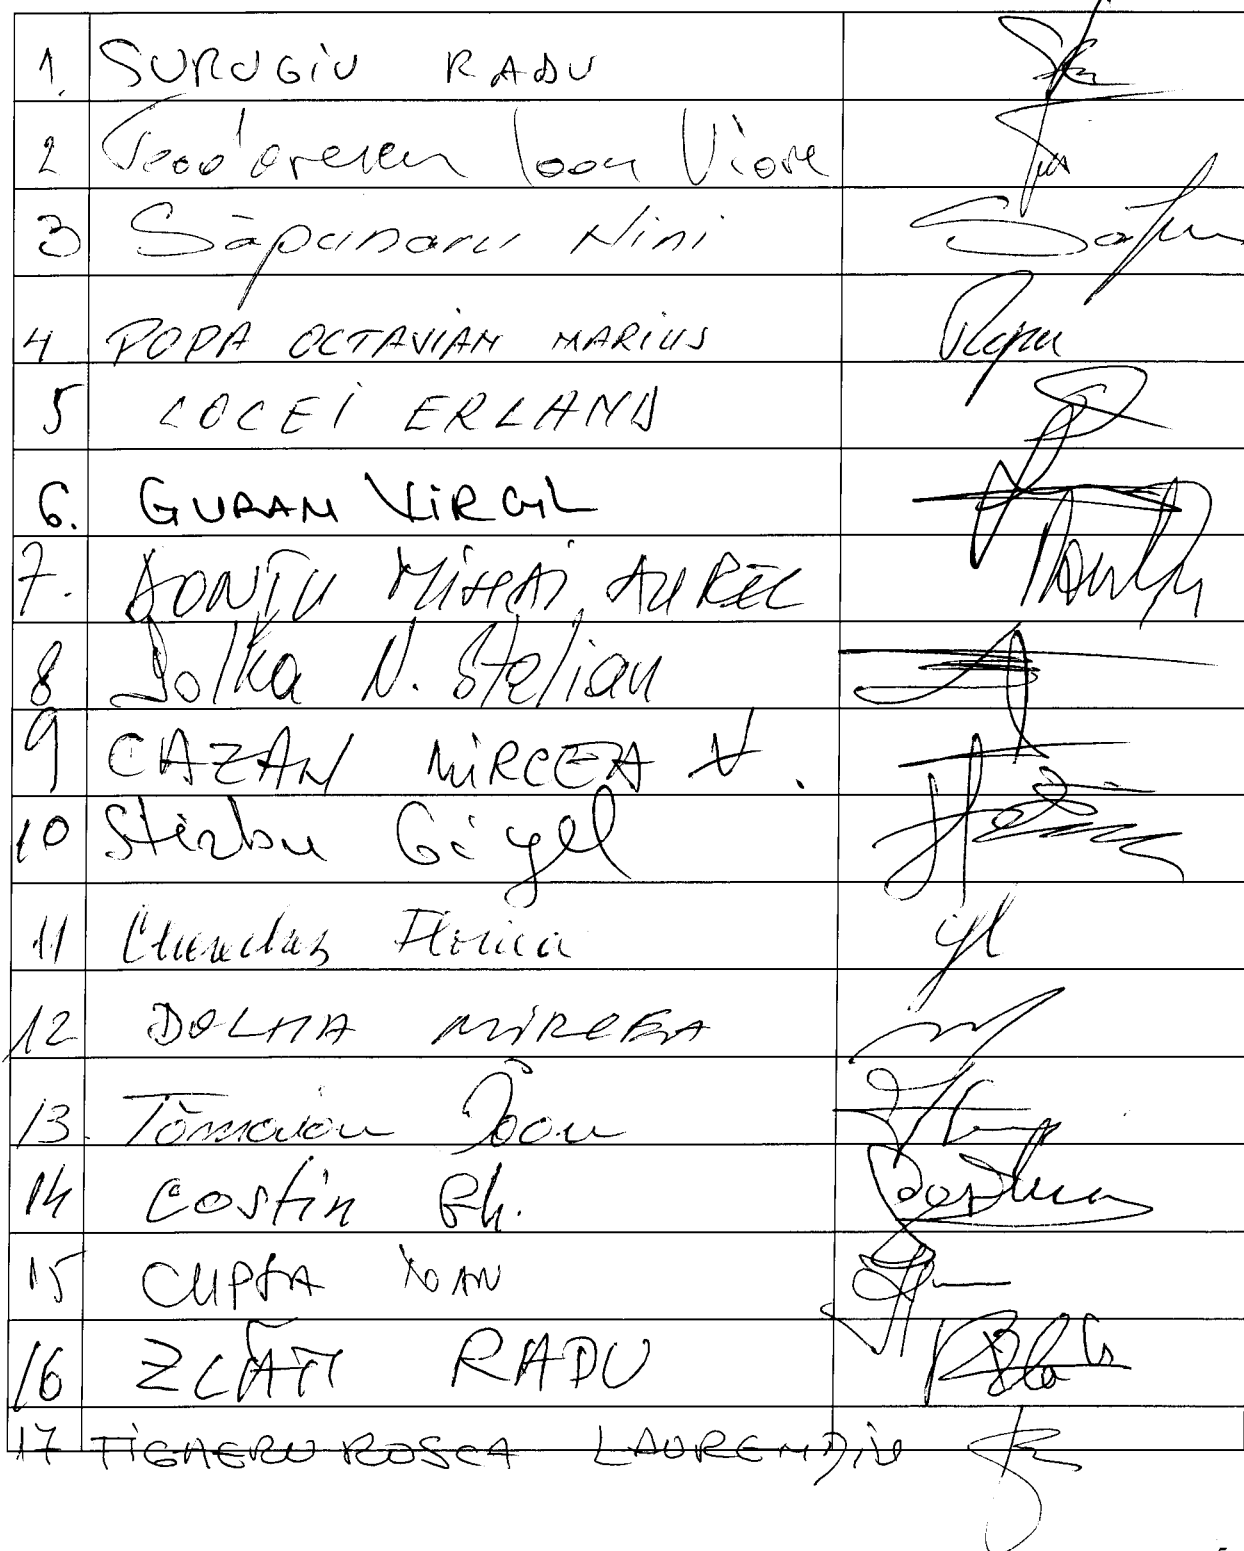 1. SURUGIU RADU
2 Teodorescu Ioan Viore
3 Săpunaru Nini
4 POPA OCTAVIAN MARIUS
5 LOCEI ERLAND
6. GURAN VIRGIL
7. DONȚU MIHAI AUREL
8 Dolha N. Stelian
9 CAZAN MIRCEA V.
10 Stirbu Gigel
11 Florica
12 DOLHA MIRCEA
13. Tămaian Ioan
14 Costin Gh.
15 CUPȘA IOAN
16 ZLATI RADU
17 ROSCA LAURENȚIU